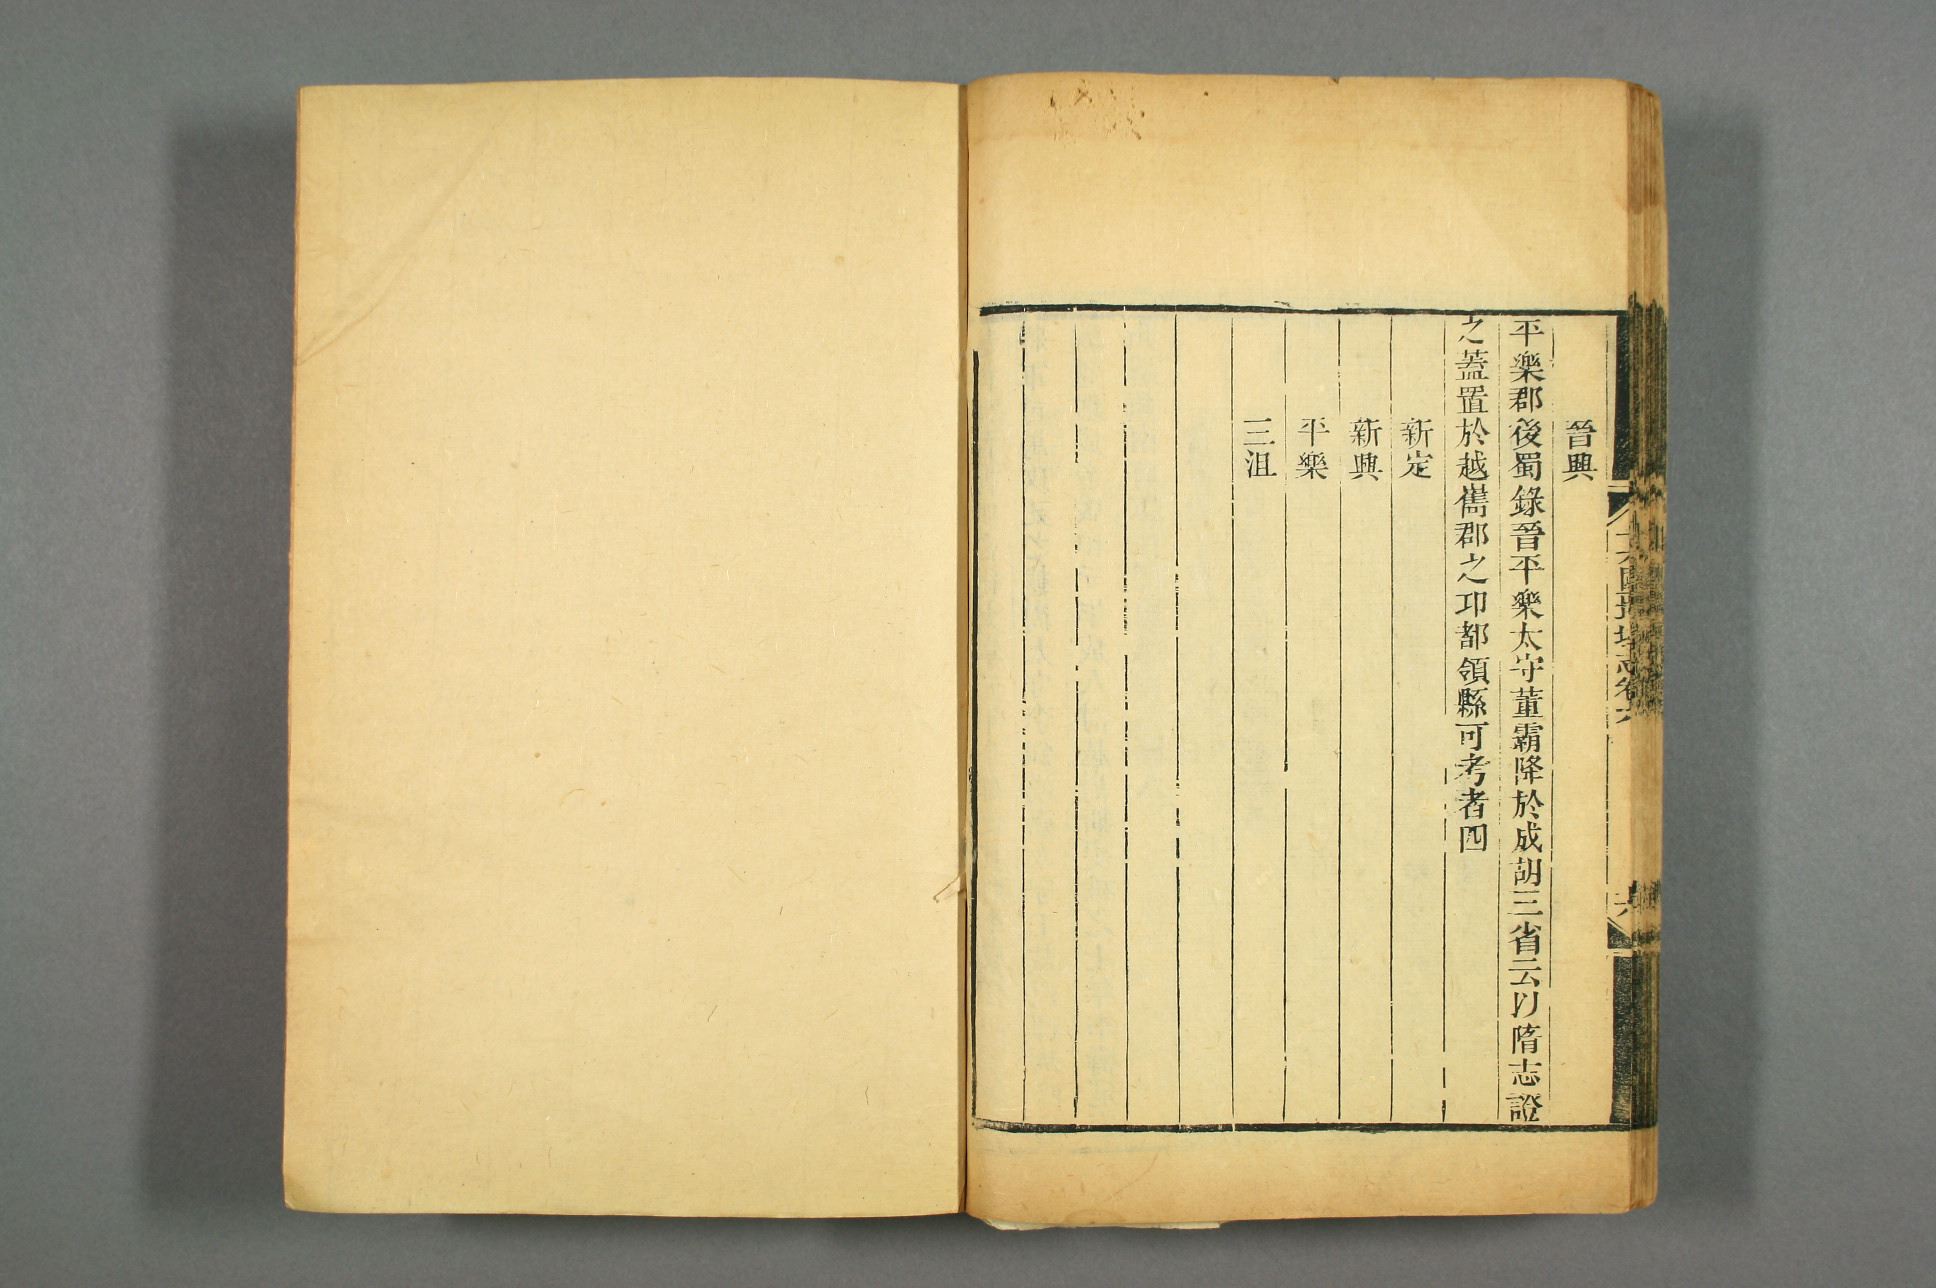 晉興
平樂郡後蜀錄晉平樂太守董霸降於成胡三省云以隋志證
之蓋置於越巂郡之邛都領縣可考者四
新定
新興
平樂
三沮